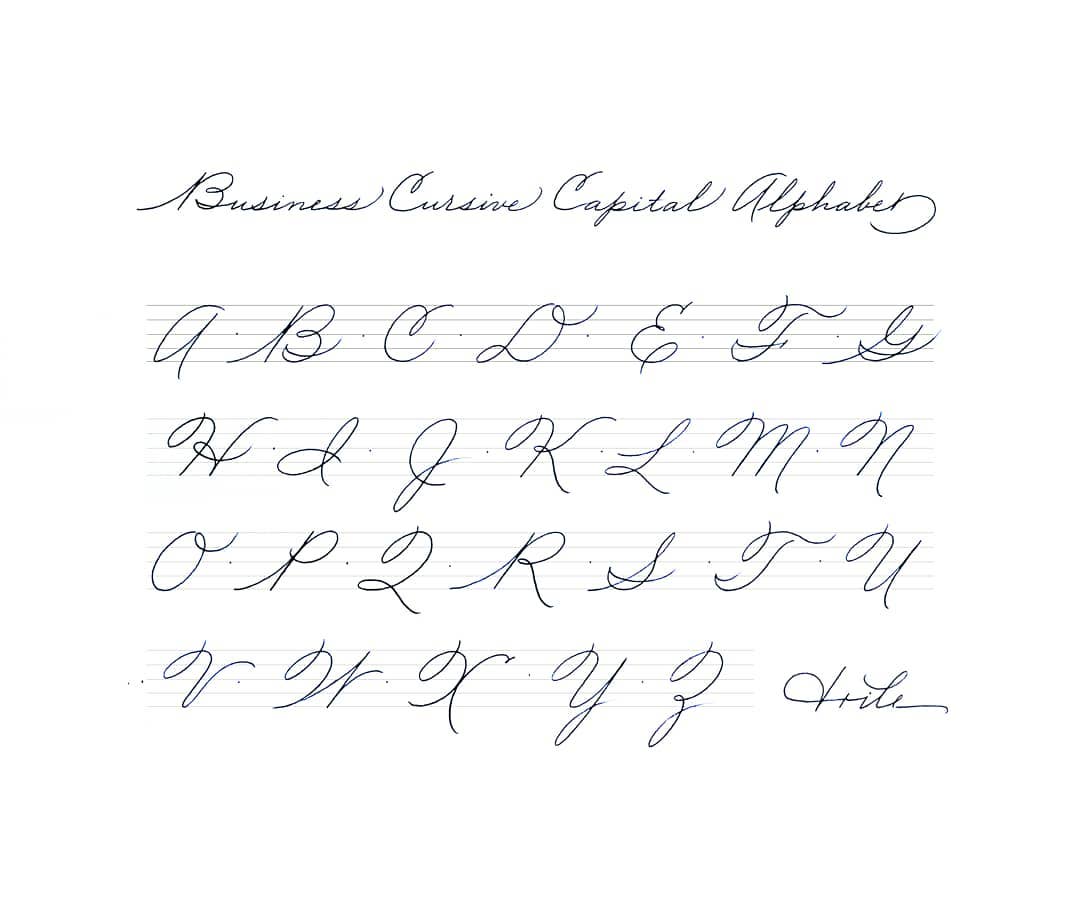 Business Cursive Capital Alphabet
A · B · C · D · E · F · G
H · I · J · K · L · M · N
O · P · Q · R · S · T · U
· V · W · X · Y · Z